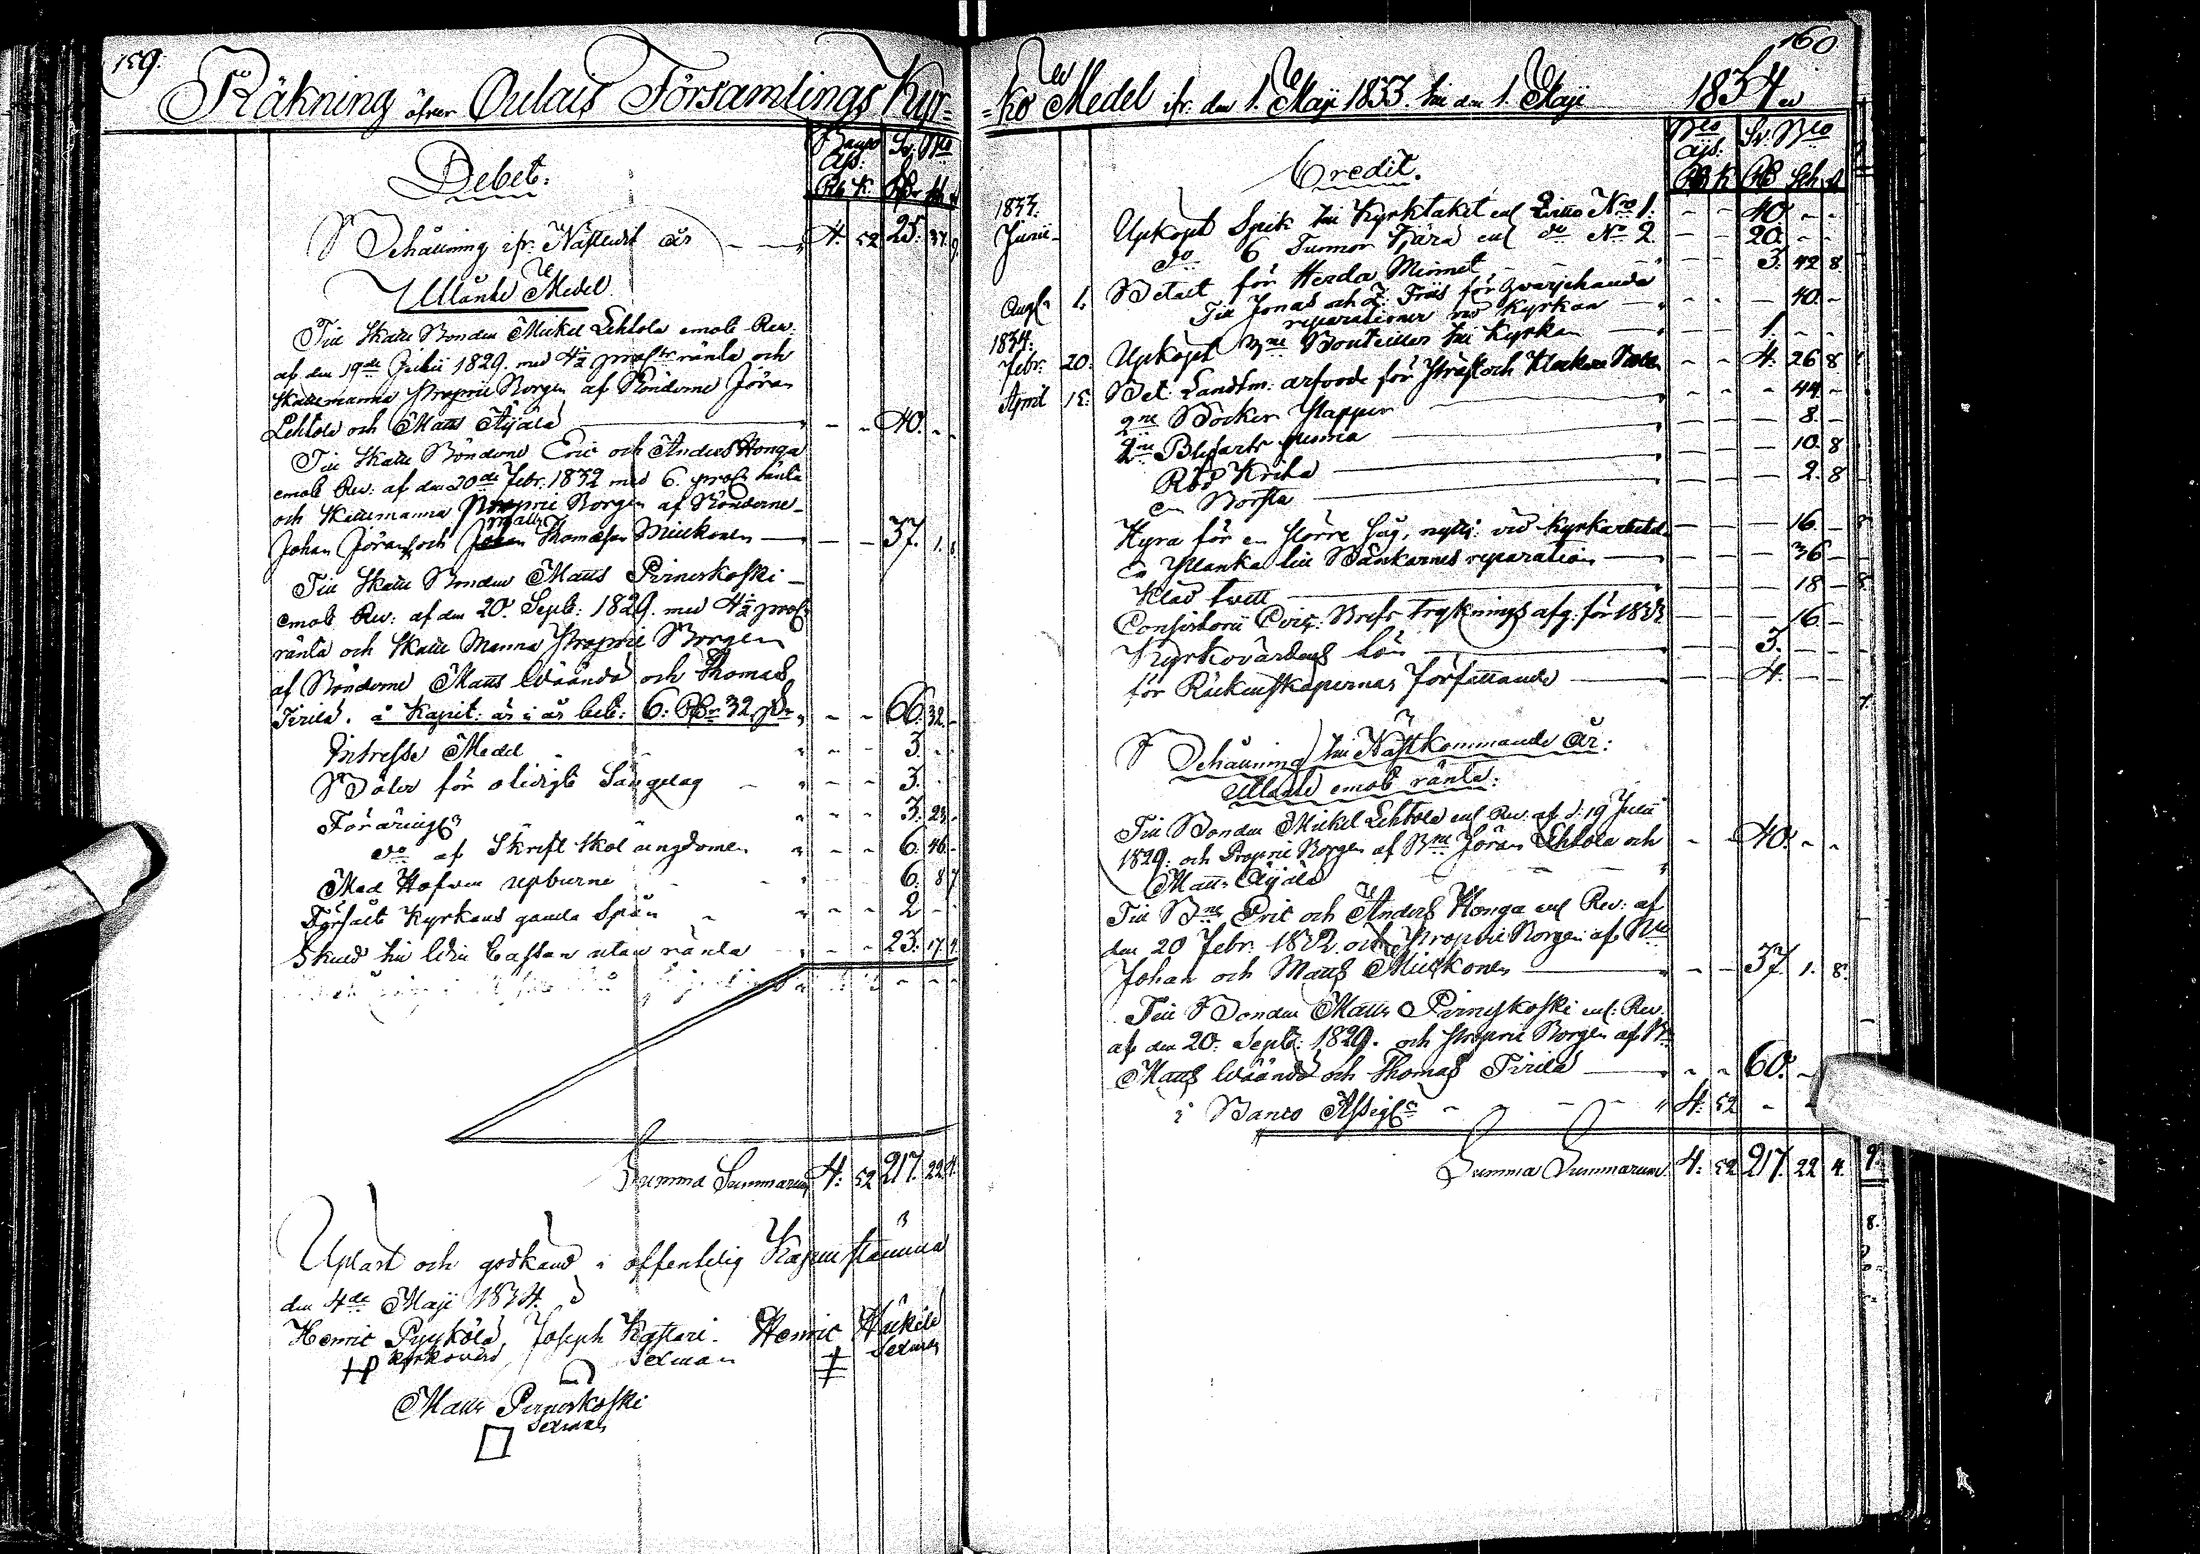 159.
Räkning öfver Oulais Församlings Kyr-
Debet.
Banco Ass: Sv: Bco
Rb K. Rdr sk
Behållning ifr. Näftledit år 4. 52 25. 37. 9
Utlånte Medel
Till Skatte Bonden Mickel Lehtola emot Rev:
af den 19de Julii 1829. med 4½ procts ränta och
Skattemanna Proprie Borgen af Bönderne Jöran
Lehtola och Matts Äijälä 40. - -
Till Skatte Bönderne Eric och Anders Honga
emot Rev: af den 20de Febr. 1832 med 6. proc: ränta
och Skattemanna Proprie Borgen af Bönderne
Johan Jöransson och Matts Thomasson Mieskonen 37. 1. 8
Till Skatte Bonden Matts Pirneskoski
emot Rev: af den 20. Septb: 1829. med 4½ proc
ränta och Skatte Manna Proprie Borgen
af Bönderne Matts Wäänä och Thomas
Tirilä. å Kapit: är i år bet: 6. Rdr 32 sk 66. 32. -
Intresse Medel 3. - -
Böter för olidigt Sängelag 3. -
Föräringar 3. 23.
do af Skrift Skol ungdomen 6. 46. -
Med Håfven upburne 6. 8 7
Försålt Kyrkans gamla Spån 2 - -
Skuld till Win Cassan utan ränta 23. 17 4.
Summa Summarum 4. 52 217. 22 4.
Upläst och godkänd i offentelig Kapellstämma
den 4de Maji 1834.
Henric Pyykölä, Joseph Kastari. Henric Häikilä
Kyrkovärd Sexman Sexman
Matts Pirneskoski
Sexman
160
-ko Medel ifr. den 1. Maji 1833. till den 1. Maji 1834
Credit.
Bco Ass: Sv: Bco
Rb K Rd Sch
1833.
Junii Upköpt Spik till Kyrktaket enl Qvitto No 1. - - 40. - -
do 6 Tunnor Tjära enl do No 2. - - 20. - -
Betalt för Herda Minnet - - 3. 42 8
Augs 1. Till Jonas och Z. Friis för hvarjehanda
reparationer vid Kyrkan - - - 40. -
1834.
Febr. 20. Upköpt 3ne Bouteiller till Kyrkan 1. - -
April 15. Bet: Landtm: arfvode för Präst och Klockare Bolen - - 4. 26 8
2ne Böcker Papper - - - 44. -
2ne Blyfarts penna - - - 8. -
Röd Krita - - - 10. 8
en Borsta - - - 2. 8
Hyra för en större Såg, nyttj: vid Kyrkarbetet - - - 16. -
En Planka till Bänkarnes reparation - - - 36 -
Kläd tvätt - - - 18 -
Consistorii Circ: Brefs tryknings afg. för 1833 - - - 16. -
Kyrkovärdens lön - - 3. - -
för Räkenskapernas författande - - 4. - -
Behållning till Nästkommande År:
Utlånt emot ränta:
Till Bonden Mickel Lehtola enl Rev: af d: 19 Julii
1829. och Proprie Borgen af Bne Jöran Lehtola och - 40. - -
Matts Äijälä
Till Bne Eric och Anders Honga enl Rev: af
den 20 Febr. 1832. och Proprie Borgen af Bne
Johan och Matts Mieskonen - - 37. 1. 8.
Till Bonden Matts Pirneskoski enl: Rev.
af den 20. Septb: 1829. och Proprie Borgen af Bne
Matts Wäänä och Thomas Tirilä - - 60. -
i Banco Assigs 4. 52 - -
Summa Summarum. 4. 52 217. 22 4.